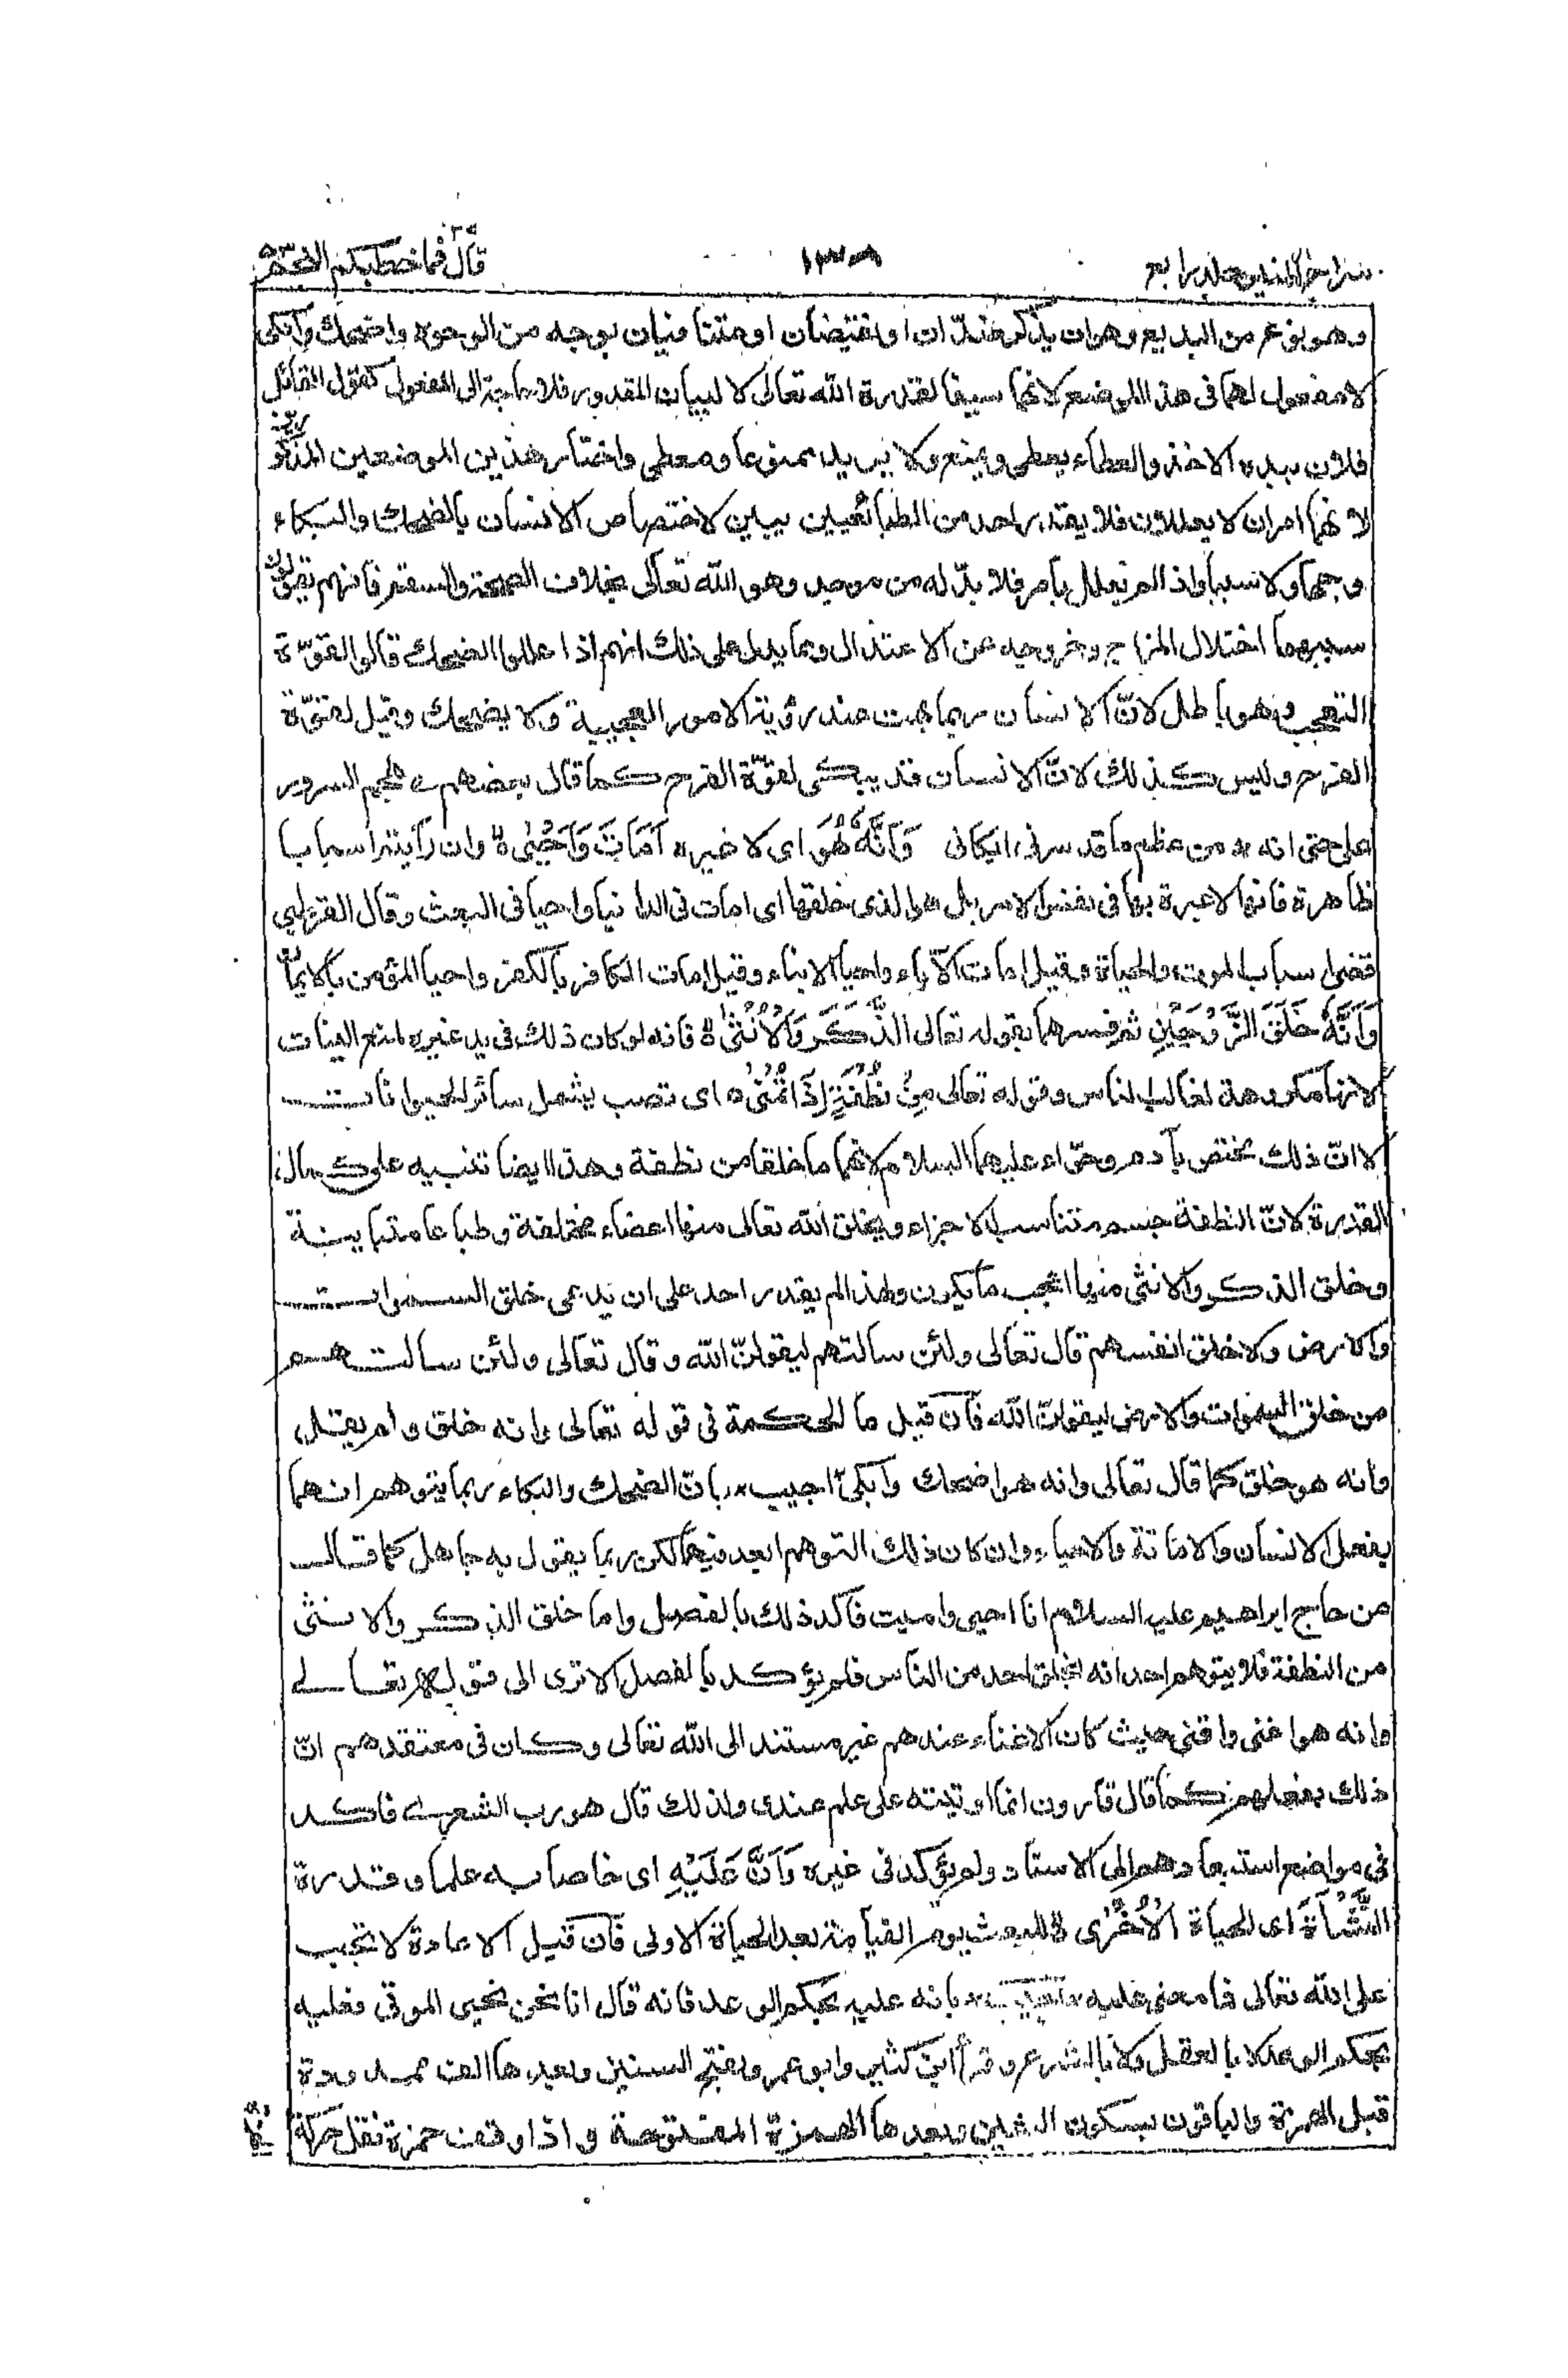 سراج المنير جلد رابع ١٣٨ قال فما خطبكم ٢٧ النجم ٥٣
وهو نوع من البديع وهو ان يذكر ضدّان او نقيضان او متنافيان بوجه من الوجوه واضحك وابكى
لا مفعول لهما فى هذا الموضع لانهما سيقا لقدرة الله تعالى لا لبيان المقدور فلا حاجة الى المفعول كقول القائل
فلان بيده الاخذ والعطاء يعطى ويمنع ولا يريد ممنوعا ومعطى واختار هذين الموضعين المذكورين
لانهما امران لا يعللان فلا يقدر احد من الطبائعيين يبين لاختصاص الانسان بالضحك والبكاء
وجها ولا سببا واذا لم يعلل بامر فلا بدّ له من موجد وهو الله تعالى بخلاف الصحة والسقم فانهم يقولون
سببهما اختلال المزاج وخروجه عن الاعتدال ومما يدل على ذلك انهم اذا عللوا الضحك قالوا لقوّة
التعجب وهو باطل لانّ الانسان ربما بهت عند رؤية الامور العجيبة ولا يضحك وقيل لقوّة
الفرح وليس كذلك لانّ الانسان قد يبكى لقوّة الفرح كما قال بعضهم ے هجم السرور
على حتى انه ٭ من عظم ما قد سرنى ابكانى وَاَنَّهٗ هُوَ اى لا غيره اَمَاتَ وَاَحْيٰى ۙ وان رأيتم اسبابا
ظاهرة فانها لا عبرة بها فى نفس الامر بل هو الذى خلقها اى امات فى الدنيا واحيا فى البعث وقال القرطبى
قضى اسباب الموت والحياة وقيل امات الآباء واحيا الابناء وقيل امات الكافر بالكفر واحيا المؤمن بالايمان
وَاَنَّهٗ خَلَقَ الزَّوْجَيْنِ ثم فسرهما بقوله تعالى الذَّكَرَ وَالْاُنْثٰى ۙ فانه لو كان ذلك فى يد غيره لمنع البنات
لانها مكروهة لغالب الناس وقوله تعالى مِنْ نُّطْفَةٍ اِذَا تُمْنٰى ۪ اى تصب يشمل سائر الحيوانات
لا انّ ذلك مختص بآدم وحوّاء عليهما السلام لانهما ما خلقا من نطفة وهذا ايضا تنبيه على كمال
القدرة لانّ النطفة جسم متناسب الاجزاء ويخلق الله تعالى منها اعضاء مختلفة وطباعا متباينة
وخلق الذكر والانثى منها اعجب ما يكون ولهذا لم يقدر احد على ان يدعى خلق السموات
والارض ولا خلق انفسهم قال تعالى ولئن سالتهم ليقولنّ الله وقال تعالى ولئن سالتهم
من خلق السموات والارض ليقولنّ الله فان قيل ما الحكمة فى قوله تعالى وانه خلق ولم يقل
وانه هو خلق كما قال تعالى وانه هو اضحك وابكى اجيب بانّ الضحك والبكاء ربما يتوهم انهما
بفعل الانسان والاماتة والاحياء وان كان ذلك التوهم ابعد فيهما لكن ربما يقول به جاهل كما قال
من حاج ابراهيم عليه السلام انا احيى واميت فاكد ذلك بالفصل واما خلق الذكر والانثى
من النطفة فلا يتوهم احد انه يخلق احد من الناس فلم يؤكد بالفصل الا ترى الى قوله تعالى
وانه هو اغنى واقنى حيث كان الاغناء عندهم غير مستند الى الله تعالى وكان فى معتقدهم انّ
ذلك بفعلهم كما قال قارون انما اوتيته على علم عندى ولذلك قال هو رب الشعرى فاكد
فى مواضع استبعادهم الى الاسناد ولم يؤكد فى غيره وَاَنَّ عَلَيْهِ اى خاصا به علما وقدرة
النَّشْاَةَ اى الحياة الْاُخْرٰى للبعث يوم القيامة بعد الحياة الاولى فان قيل الاعادة لا تجب
على الله تعالى فما معنى عليه اجيب بانه عليه بحكم الوعد فانه قال انا نحن نحيى الموتى فعليه
بحكم الوعد لا بالعقل ولا بالشرع وقرأ ابن كثير وابو عمرو بفتح الشين وبعدها الف ممدودة
قبل الهمزة والباقون بسكون الشين وبعدها الهمزة المفتوحة واذا وقف حمزة نقل حركة